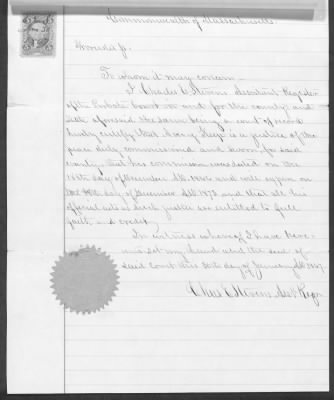 Commonwealth of Massachusetts.
Norfolk ss.
To whom it may concern —
I Charles C. Stevens Assistant Register
of the Probate Court in and for the county and
state aforesaid the same being a court of record
hereby certify that Avery Plimp is a justice of the
peace duly commissioned and sworn for said
county, that his commission was dated on the
day of December AD. 1866 and will expire on
the day of December AD 1873, and that all his
official acts as such justice are entitled to full
faith and credit.
In witness whereof I have here-
unto set my hand and the seal of
said Court this 30th day of January AD 1867
Chas C Stevens Asst Regr